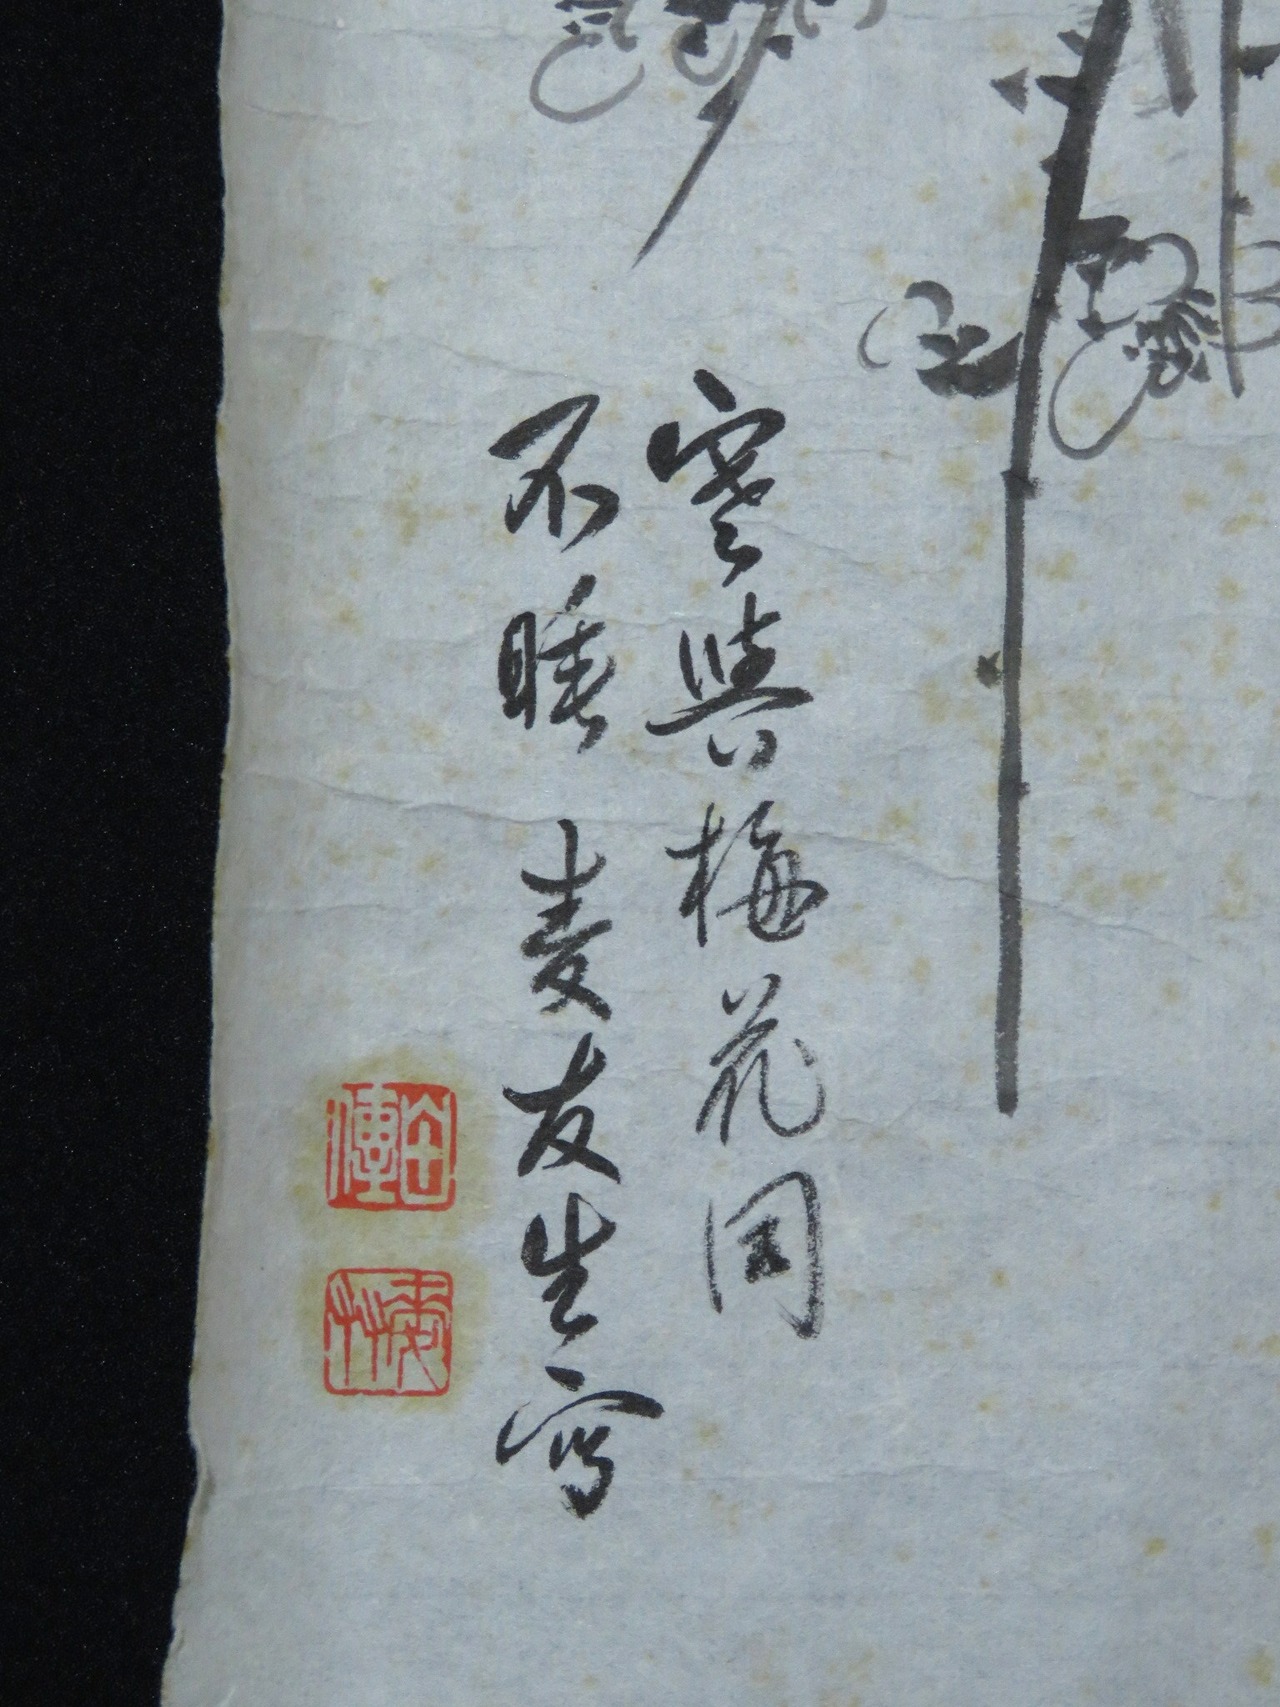 寒與梅花同
不睡麦友生寫